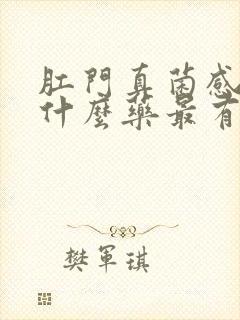 肛門真菌感
什麼藥最有
樊軍琪